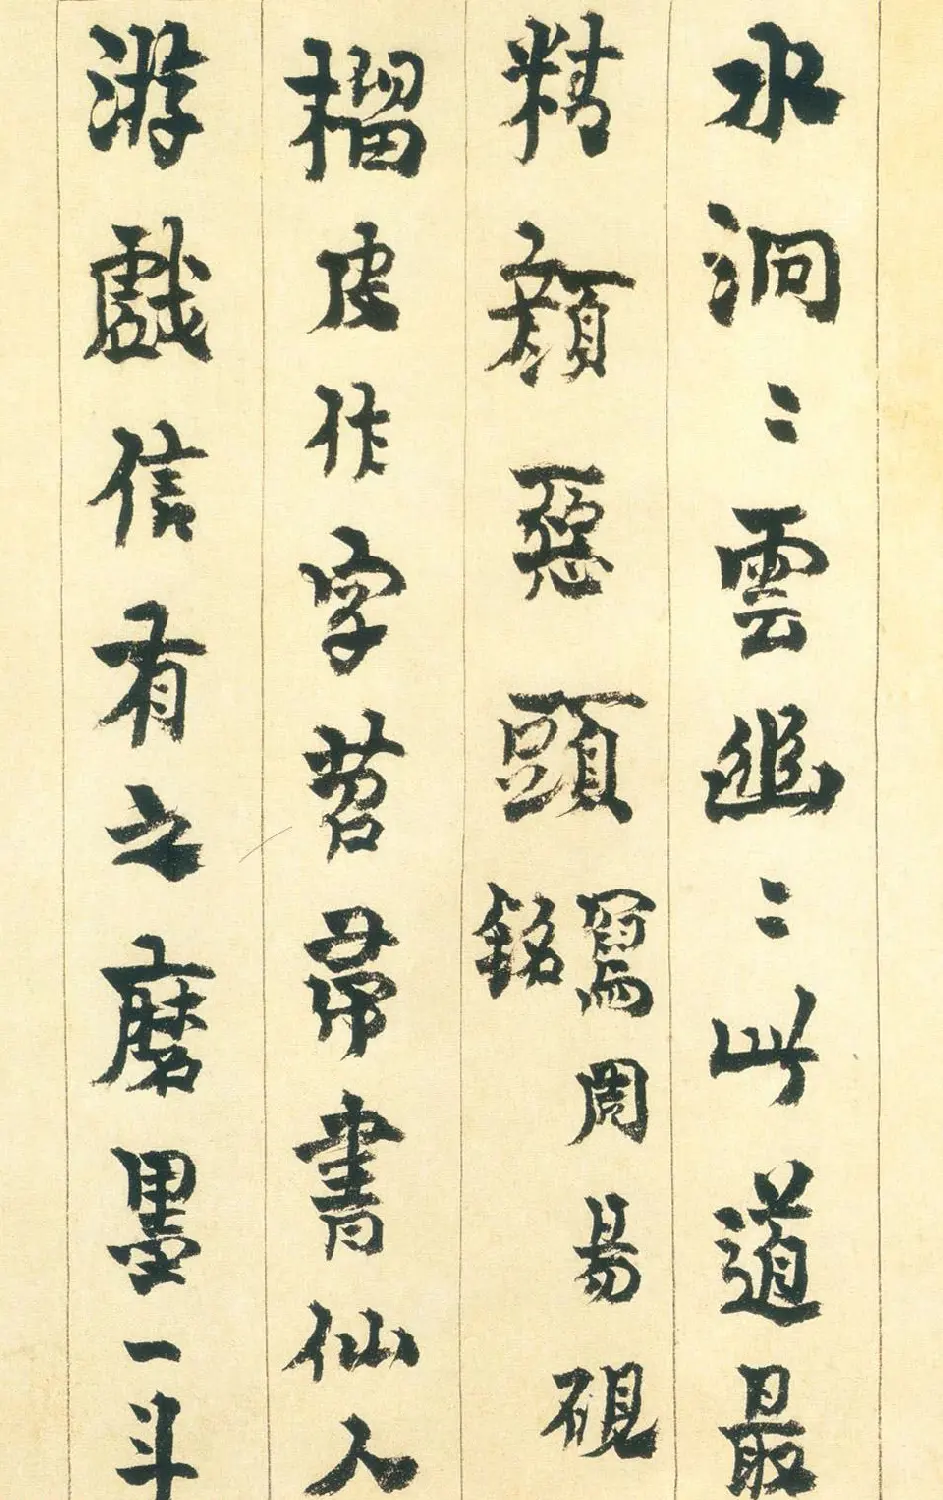 水洞〻雲幽〻此道最
精顔惡頭寫周易硯
銘
榴皮作字苕帚書仙人
游戲信有之磨墨一斗